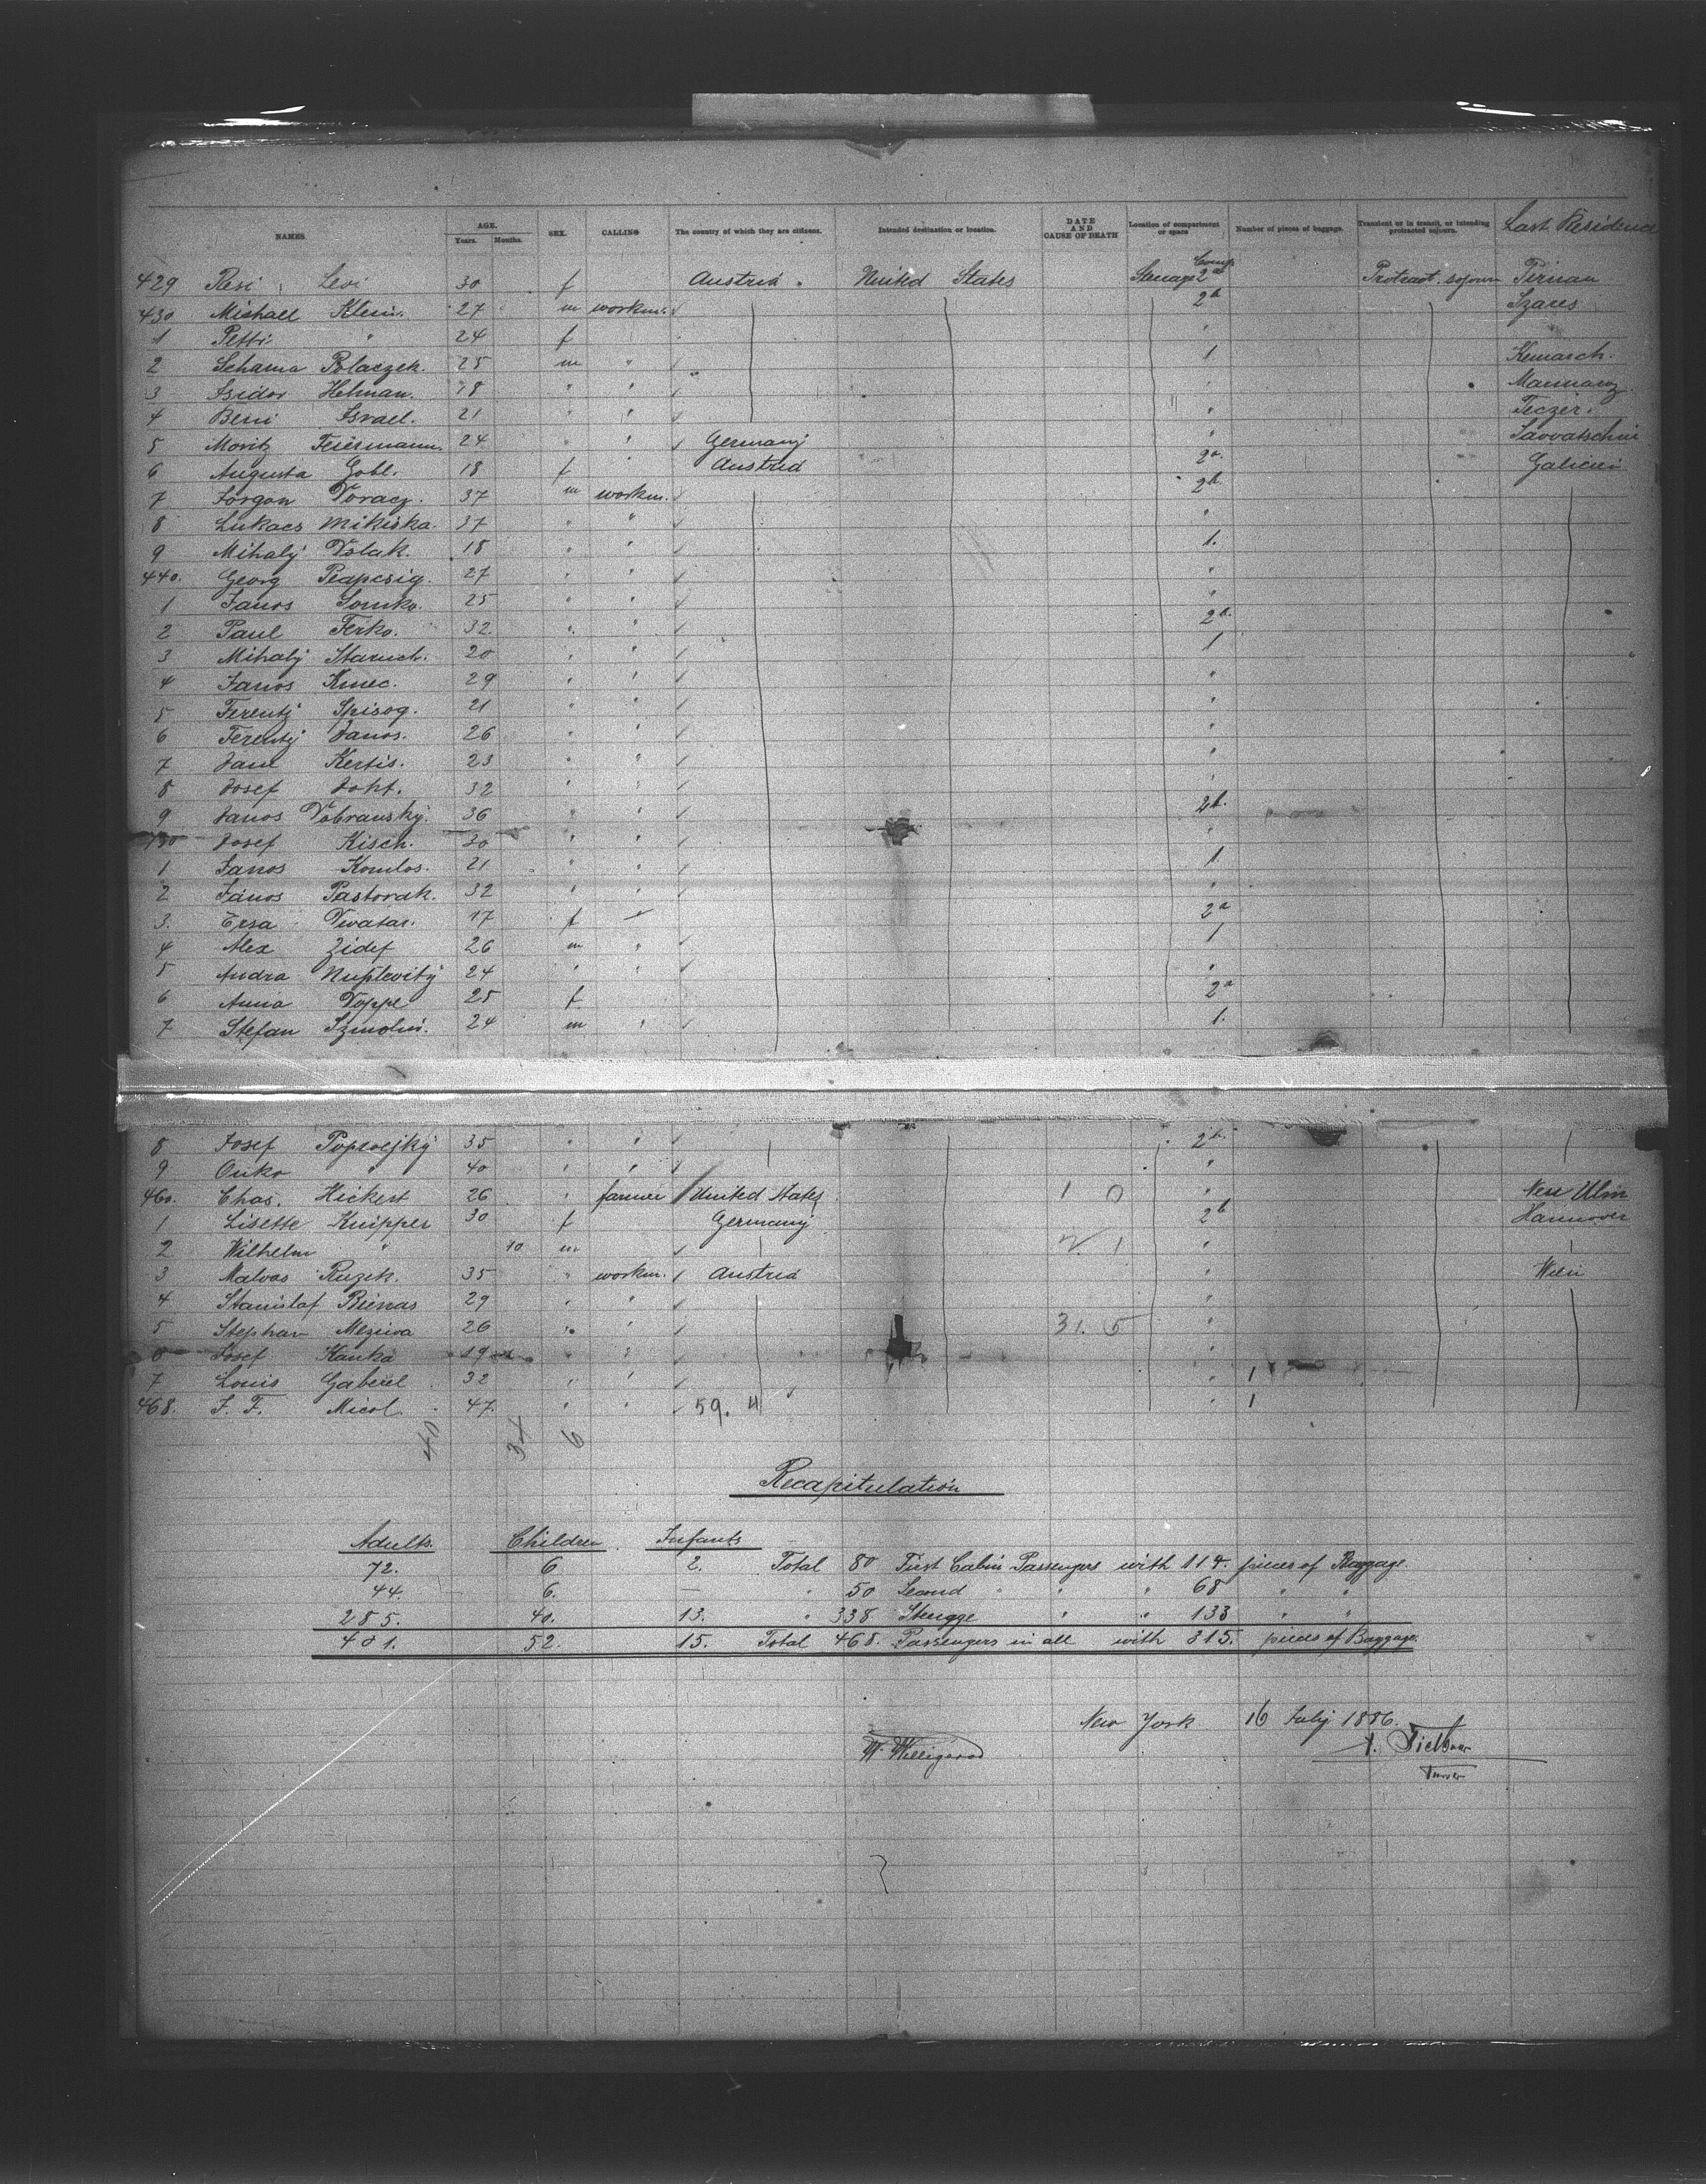 NAMES. AGE. Years. Months. SEX. CALLING The country of which they are citizens. Intended destination or location. DATE AND CAUSE OF DEATH Location of compartment or space Number of pieces of baggage. Transient or in transit, or intending protracted sojourn. Last Residence
429 Resi Levi 30 f Austria United States Steerage Comp. 2a Protract. sojourn Tirnau
430 Mishall Klein. 27 m workm. 2b Szares
1 Petti " 24 f "
2 Schama Polaczek. 25 m " 1 Kemarch.
3 Isidor Helman. 18 " " "
4 Beni Israel. 21 " " " Teczer.
5 Moritz Feiermann. 24 " " Germany "
6 Augusta Gobl. 18 f " Austria 2a. Galicien
7 Jorgon Voracz. 37 m workm. 2b.
8 Lukacs Mikiska. 37 " " "
9 Mihaly Vslak. 18 " " 1.
440. Georg Peapcsig. 27 " " "
1 Janos Somko. 25 " " "
2 Paul Ferko. 32. " " 2b.
3 Mihaly Staruch. 20 " " 1
4 Janos Kmec. 29 " " "
5 Ferentz Spisog. 21 " " "
6 Ferentz Janos. 26 " " "
7 Jane Kertis. 23 " " "
8 Josef Joht. 32 " " "
9 Janos Vobransky. 36 " " 2b.
Josef Kisch. 30 " " "
1 Janos Komlos. 21 " " 1
2 Janos Pastorak. 32 " " "
3. Ersa Vwatar. 17 f 2a
4 Alex Zidef 26 m " 1
5 Andra 24 " " "
6 Anna Voppe 25 f 2a
7 Stefan Szmolni. 24 m " 1.
8 Josef 35 " " 2b.
9 Onko " 40 " " "
460. Chas. Hickert 26 " farmer United States 1 0 " New Ulm
1 Lisette Knipper 30 f Germany 2b Hannover
2 Wilhelm " 10 m 1 "
3 Malvas Ruzek. 35 " workm. Austria " Wien
4 Stanislaf Bienas 29 " " "
5 Stephan Meziva 26 " " 31. 5 "
6 Josef Kanka 19 " " "
7 Louis Gaberel 32 " " " 1
468. F. F. Micol. 47 " " 59. 4 " 1
40 34 6
Recapitulation
Adults. Children Infants
72. 6 2. Total 80 First Cabin Passengers with 114. pieces of Baggage.
44. 6. — " 50 Second " " 68 " "
285. 40. 13. " 338 Steegge " " 133 " "
401. 52. 15. Total 468. Passengers in all with 315. pieces of Baggage.
New York 16 July 1886.
W. Willigerod